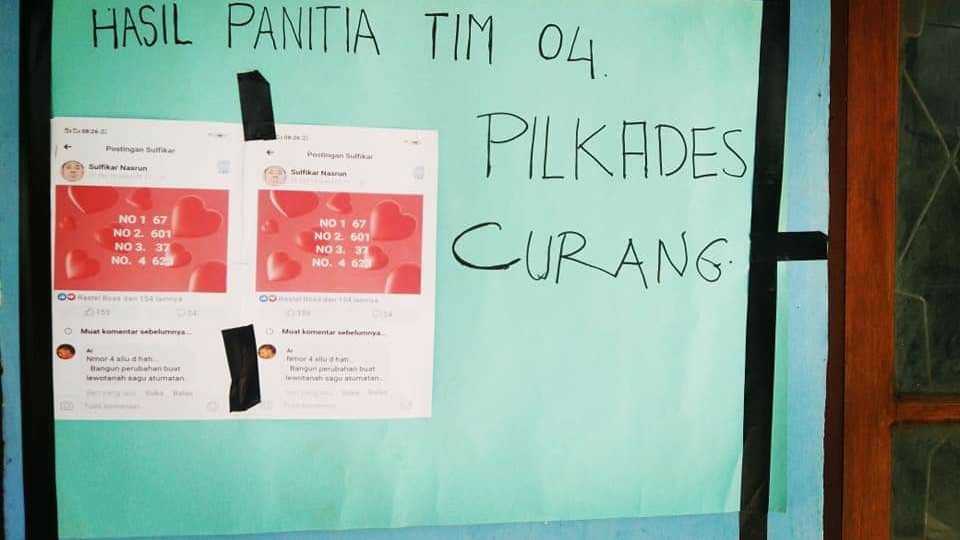 HASIL PANITIA TIM 04.
PILKADES
CURANG.
Postingan Sulfikar
Sulfikar Nasrun
NO 1 67
NO 2. 601
NO 3. 37
NO. 4 623
Rastel Boas dan 154 lainnya
155
24
Muat komentar sebelumnya...
Ar
Nmor 4 sllu d hati...
Bangun perubahan buat
lewotanah sagu atumatan.
Suka Balas
Tulis komentar...
Postingan Sulfikar
Sulfikar Nasrun
NO 1 67
NO 2. 601
NO 3. 37
NO. 4 623
Muat komentar sebelumnya...
Ar
Nmor 4 sllu d hati...
Bangun perubahan buat
lewotanah sagu atumatan.
Suka Balas
Tulis komentar...